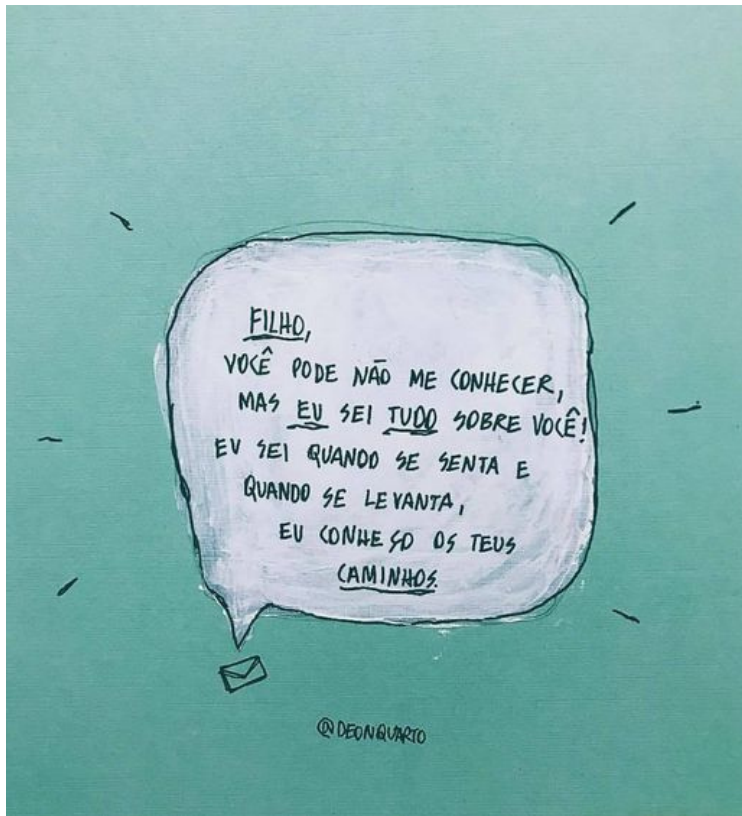 FILHO,
VOCÊ PODE NÃO ME CONHECER,
MAS EU SEI TUDO SOBRE VOCÊ!
EU SEI QUANDO SE SENTA E
QUANDO SE LEVANTA,
EU CONHEÇO OS TEUS
CAMINHOS.
@DEONQUARTO